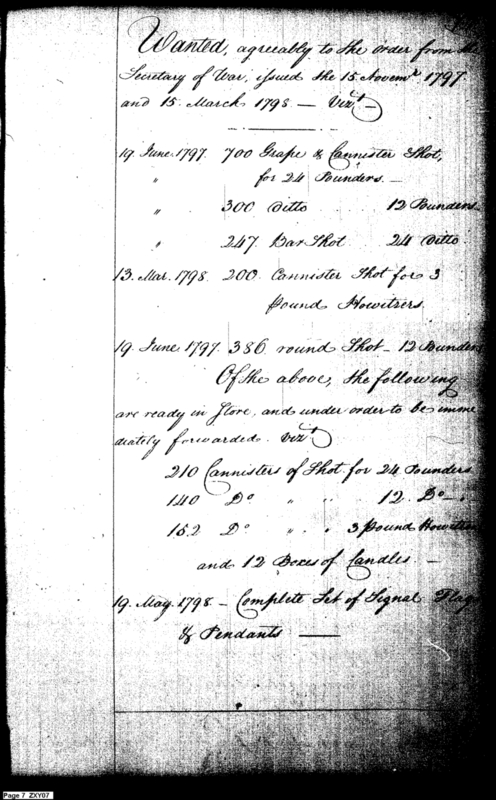 Wanted, agreeably to the order from the
Secretary of War, issued the 15 Novemr. 1797
and 15. March 1798 — Vizt —
19. June 1797. 700 Grape & Cannister Shot,
" for 24 Pounders. —
" 300 Ditto 12 Pounders
" 247. Bar Shot 24 Ditto
13. Mar. 1798. 200. Cannister Shot for 3
pound Howitzers.
19. June 1797. 386 round Shot – 12 Pounders
Of the above, the following
are ready in Store, and under order to be imme
diately forwarded. Vizt
210 Cannisters of Shot for 24 Pounders
140 Do " " 12. Do —
152 Do " " 3 pound Howitzers
and 12 Boxes of Candles —
19. May. 1798 – Complete Set of Signal Flags
& Pendants —
Page 7 ZXY07